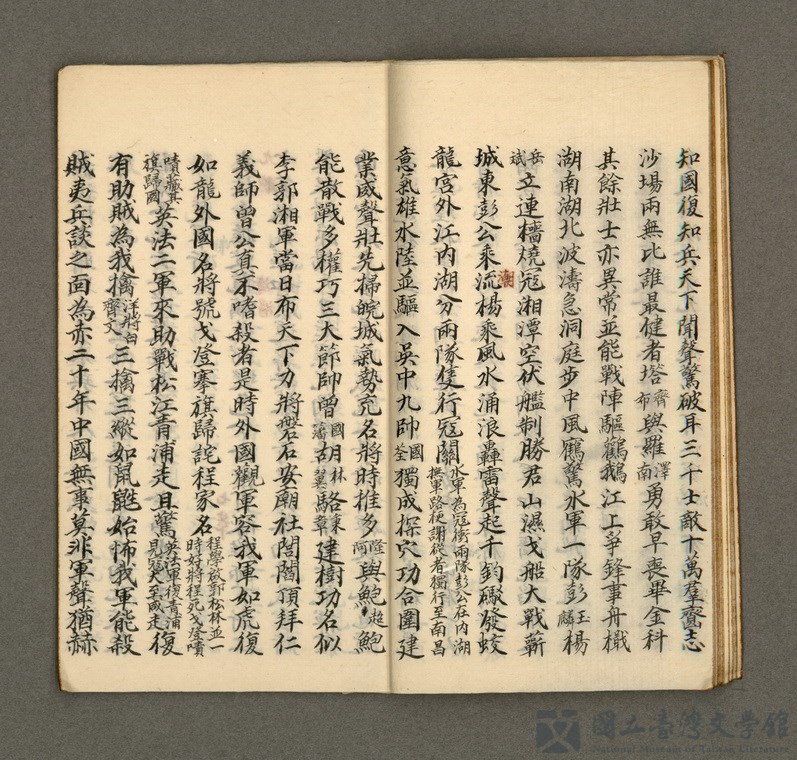 知國復知兵天下聞聲驚破耳三千士敵十萬羣齎志
沙場兩無比誰最健者塔齊布與羅澤南勇敢早喪畢金科
其餘壯士亦異常並能戰陣驅鸛鵝江上爭鋒事舟檝
湖南湖北波濤急洞庭步中風鶴驚水軍一隊彭玉麟楊
岳斌立連檣燒寇湘潭空伏艦制勝君山濕戈船大戰蘄
城東彭公乘流楊乘風水涌浪轟雷聲起千鈞礮發蛟
潮
龍宮外江內湖分兩隊隻行寇關水軍為寇衝兩隊彭公在內湖撫軍路梗謝從者獨行至南昌
意氣雄水陸並驅入吳中九帥國荃獨成探穴功合圍建
業威聲壯先掃皖城氣勢充名將時推多隆阿與鮑超鮑
能散戰多權巧三大節帥曾國藩胡林翼駱秉章建樹功名似
李郭湘軍當日布天下力將磐石安廟社閭閻頂拜仁
義師曾公真不嗜殺者是時外國觀軍容我軍如虎復
如龍外國名將號戈登搴旗歸詫程家名程學啟郭松林並一時好將程死戈登嘖
嘖藏其旗歸國英法二軍來助戰松江青浦走且驚英法軍復青浦見寇大至咸走
有助賊為我擒洋將白齊文三擒三縱如鼠鼪始怖我軍能殺
賊夷兵談之面為赤二十年中國無事莫非軍聲猶赫
國立臺灣文學館
National Museum of Taiwan Literature